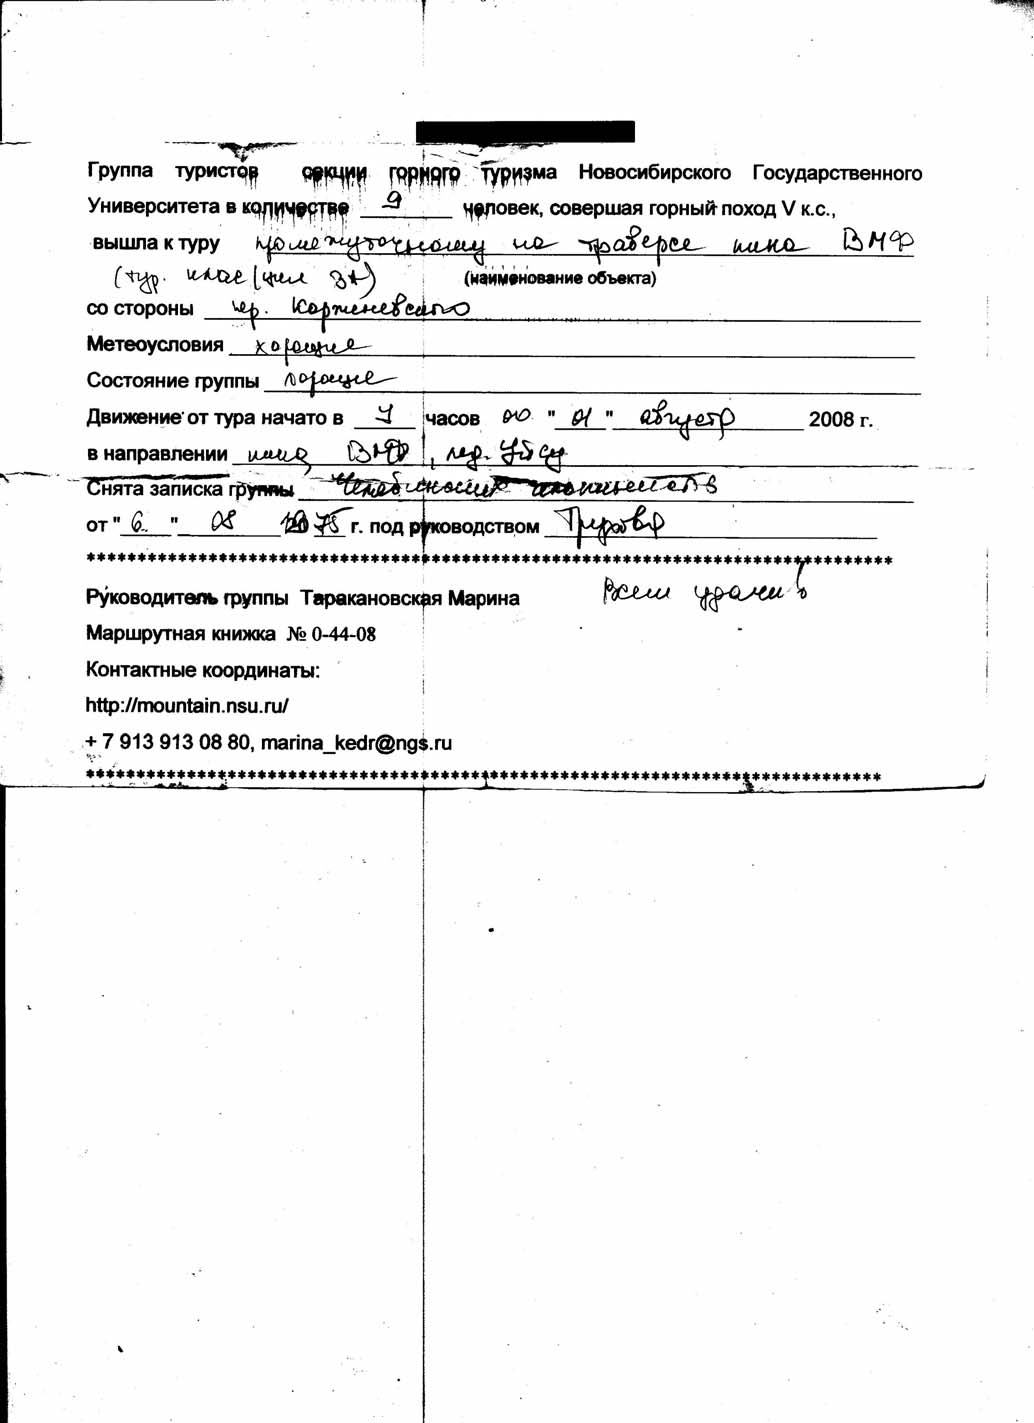 Группа туристов секции горного туризма Новосибирского Государственного
Университета в количестве 9 человек, совершая горный поход V к.с.,
вышла к туру промежуточному на траверсе пика ВМФ
(тур. 3А) (наименование объекта)
со стороны пер. Корженевского
Метеоусловия хорошие
Состояние группы хорошее
Движение от тура начато в часов 00 "01" август 2008 г.
в направлении пика ВМФ, лед. Уйсу
Снята записка группы Челябинских
от "6" 08 1975 г. под руководством
****************************************************************************
Руководитель группы Таракановская Марина Всем удачи!
Маршрутная книжка № 0-44-08
Контактные координаты:
http://mountain.nsu.ru/
+ 7 913 913 08 80, marina_kedr@ngs.ru
****************************************************************************